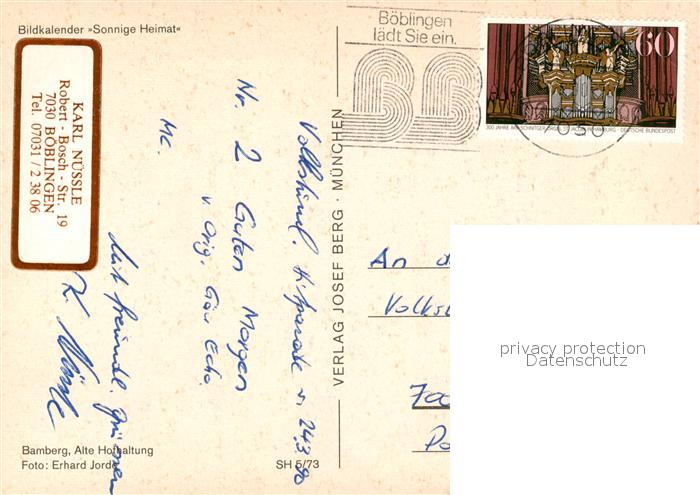 Bildkalender »Sonnige Heimat«
KARL NÜSSLE
Robert - Bosch - Str. 19
7030 BÖBLINGEN
Tel. 07031 / 2 38 06
Böblingen
lädt Sie ein.
60
300 JAHRE ARP-SCHNITGER-ORGEL ST. JACOBI HAMBURG · DEUTSCHE BUNDESPOST
Volkstüml. Hitparade v. 24.3.90
Nr. 2 Guten Morgen
v. Orig. Gäu Echo.
Mc.
Mit freundl. Grüssen
K. Nüssle
VERLAG JOSEF BERG · MÜNCHEN
An d
Volkst
700
Po
privacy protection
Datenschutz
Bamberg, Alte Hofhaltung
Foto: Erhard Jorde
SH 5/73